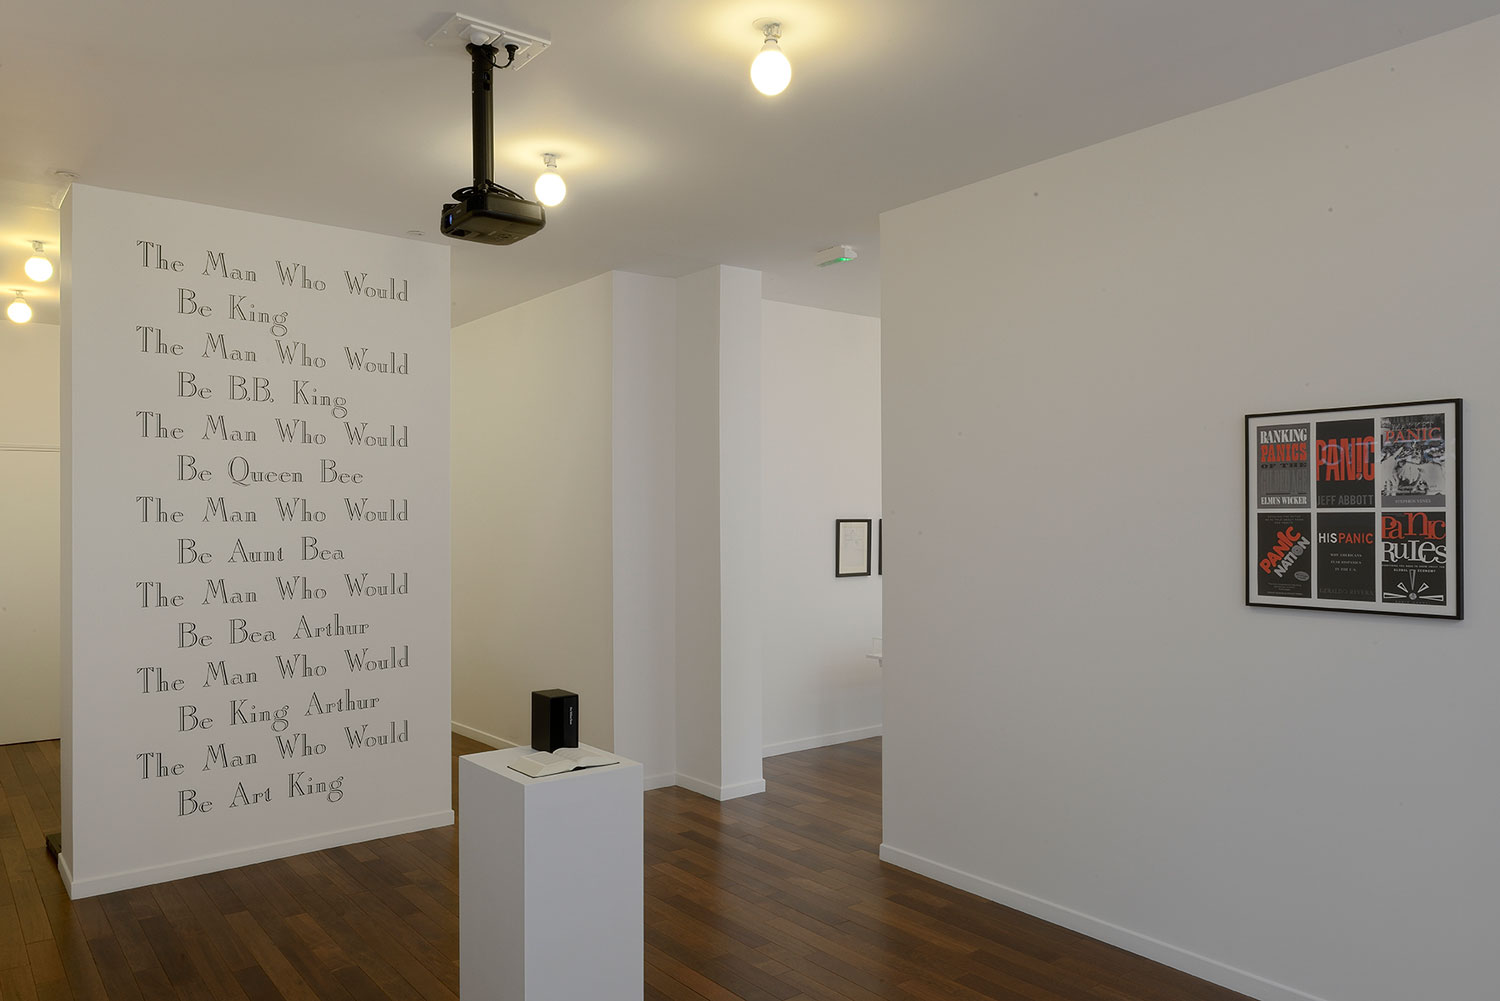 The Man Who Would
Be King
The Man Who Would
Be B.B. King
The Man Who Would
Be Queen Bee
The Man Who Would
Be Aunt Bea
The Man Who Would
Be Bea Arthur
The Man Who Would
Be King Arthur
The Man Who Would
Be Art King
BANKING
PANICS
OF THE
ELMUS WICKER
PANIC
JEFF ABBOTT
PANIC
PANIC
NATION
HISPANIC
WHY AMERICANS
FEAR HISPANICS
IN THE U.S.
Panic
RULES
EVERYTHING YOU NEED TO KNOW ABOUT THE
GLOBAL ECONOMY